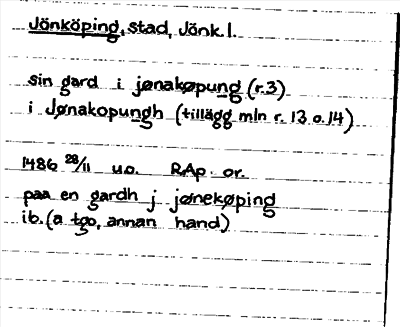 Jönköping, stad, Jönk. l.
sin gard i jønakøpung (r.3)
i Jønakopungh (tillägg mln r. 13 o. 14)
1486 28/11 u.o. RAp. or.
paa en gardh j jønekøping
ib. (a tgo, annan hand)